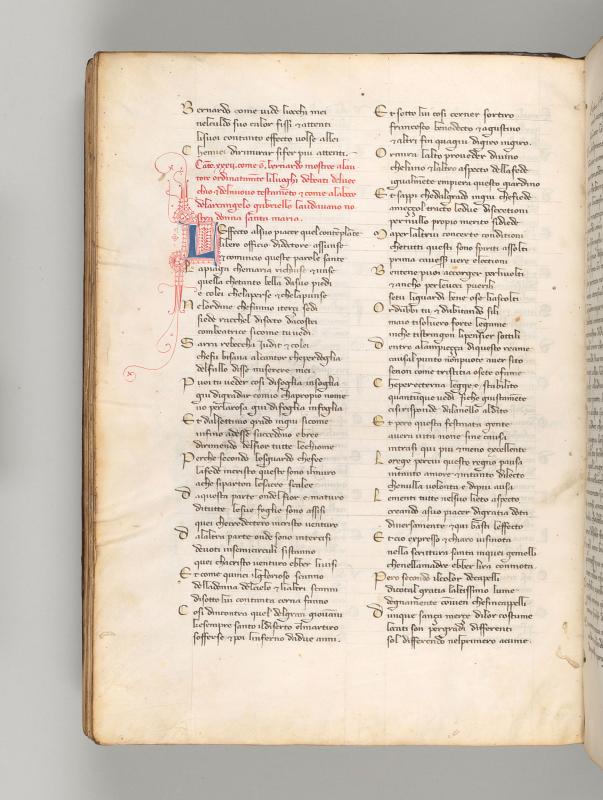 Bernardo come vide liocchi mei
nelcaldo suo calor fissi & attenti
lisuoi contanto affecto volse allei
Chemiei dirimirar sifer piu attenti.
Cāto.xxxii.come .s. bernardo mostroe alau
tore ordinatamēte liluoghi debeati deluec
chio & delnuovo testamēto & come alabocc
delarcangelo gabriello laudavano no
stra donna santa maria.
LEffecto alsuo piacer quel contēplāte
libero officio didoctore assunse
& comincio queste parole sante
Lapiaga chemaria richiuse & unse
quella chetanto bella dasuo piedi
e colei chelaperse & chelapunse
Nelordine chefanno iterzi sedi
siede rachel disocto dacostei
conbeatrice sicome tuvedi
Sarra rebeccha Iudit & colei
chefu bisava alcantor cheperdoglia
delfallo disse miserere mei
Puoi tu veder cosi disoglia insoglia
giu digradar comio chapropio nome
vo perlarosa giu difoglia infoglia
Et dalsettimo grado ingiu sicome
infino adesse succedono ebree
dirimendo delfior tutte lechiome
Perche secondo losguardo chefee
lafede incristo queste sono ilmuro
ache siparton lesacre scalee
Daquesta parte ondel fior e maturo
ditutte lesue foglie sono assisi
quei checredectero incristo venturo
Dalaltra parte onde sono intercisi
devoti insemicirculi sistanno
quei chacristo venuto ebber livisi
Et come quinci ilglorioso scanno
delladonna delcielo & lialtri scanni
disotto lui cotanta cerna fanno
Cosi dincontra quel delgran giovanni
chesempre santo ildiserto elmartiro
sofferse & poi linferno dadue anni.
Et sotto lui cosi cerner sortiro
francesco benedecto & agustino
& altri fin quagiu digiro ingiro.
Or mira lalto proveder divino
cheluno & laltro aspecto dellafede
igualmēte empiera questo giardino
Et sappi chedalgrado ingiu chefiede
amezzol tracto ledue discretioni
pernullo propio merito sisiede
Ma perlaltrui concerto conditioni
chetutti questi sono spiriti assolti
prima cavessi vere electioni
Ben tene puoi accorger perlivolti
& ancho perlevoci puerili
setu liguardi bene & se liascolti
Or dubbi tu & dubitando sili
maio tisolvero forte legame
inche tistringon lipensier sottili
Dentro alampiezza diquesto reame
causal punto nōnpuote aver sito
senon come tristitia osete ofame
Cheper eterna legge e stabilito
quantunque vedi siche giustamēte
cisirisponde dalanello aldito
Et pero questa festinata gente
avera vita none sine causa
intrasi qui piu & meno excellente
Lorege percui questo regno pausa
intanto amore & intanto dilecto
chenulla volonta e dipiu ausa
Lementi tutte nelsuo lieto aspecto
creando asuo piacer digratia dota
diversamente & qui basti leffecto
Et cio expresso & chiaro visinota
nella scrittura santa inquei gemelli
chenellamadre ebber lira commota
Pero secondo ilcolor decapelli
dicotal gratia laltissimo lume
degnamente convien chesincappelli
Dunque sanza merze dilor costume
locati son pergradi differenti
sol differendo nelprimero acume.